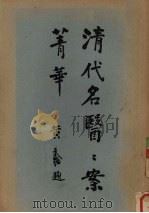 清代名醫醫案
菁華